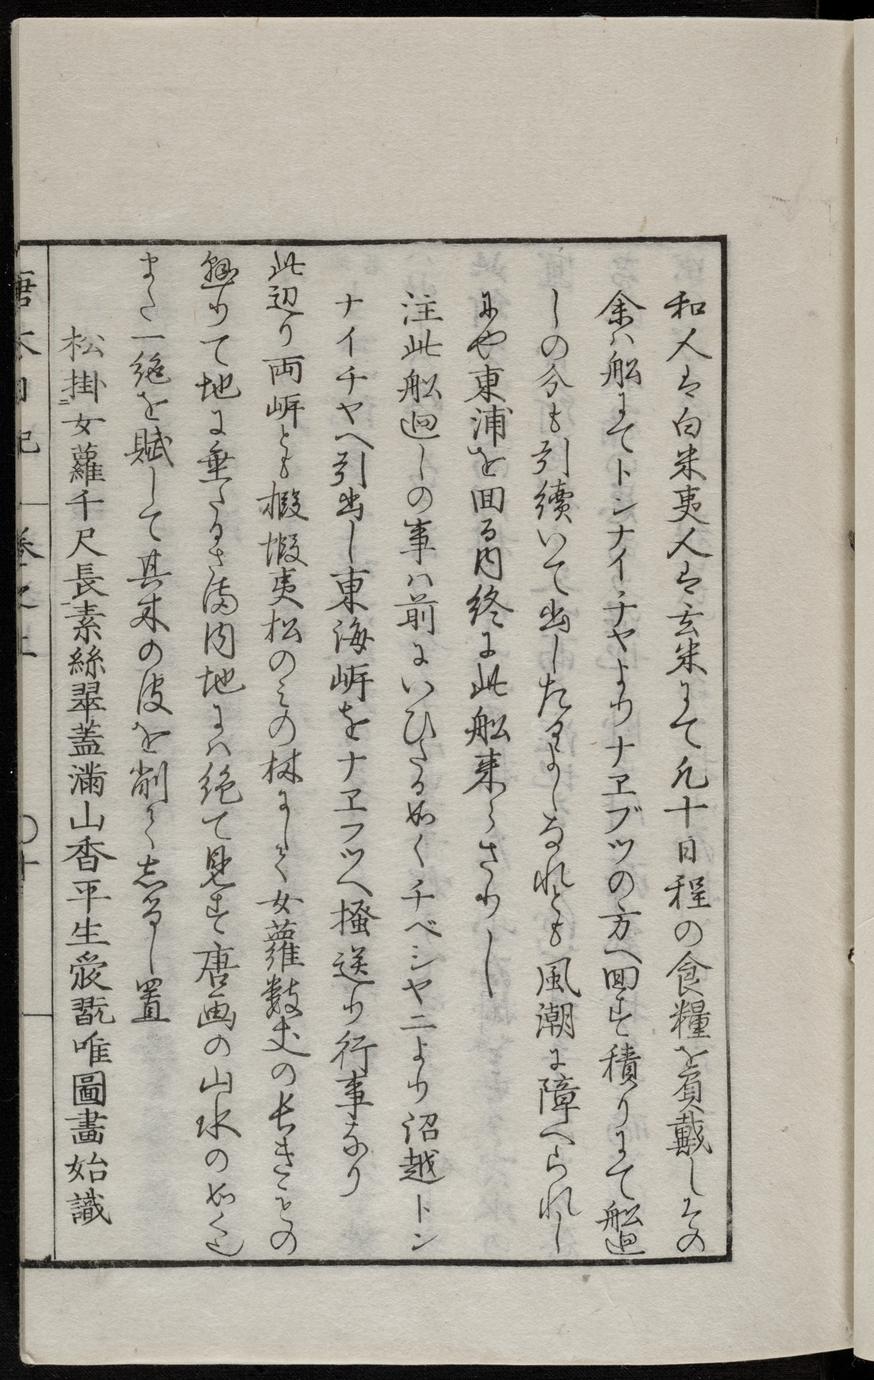 和人は白米夷人は玄米にて凡十日程の食糧を負戴しその
余ハ船にてトンナイチヤよりナヱブツの方へ回す積りにて船廻
しの分も引續いて出したるよしなれとも風潮に障へられし
にや東浦を回る内終に此船来らさりし
注此船廻しの事ハ前にいひたる如くチベシヤニより沼越トン
ナイチヤへ引出し東海岍をナヱフツへ掻送り行事なり
此辺り両岍とも椵𡏘夷松のミの林にして女蘿数丈の長きもの
懸りて地に垂たるさま内地にハ絶て見す唐画の山水の如く也
また一絶を賦して其木の皮を削てしるし置
松掛女蘿千尺長素絲翠蓋滿山香平生愛翫唯圖畵始識
唐太日記 巻之上 〇十